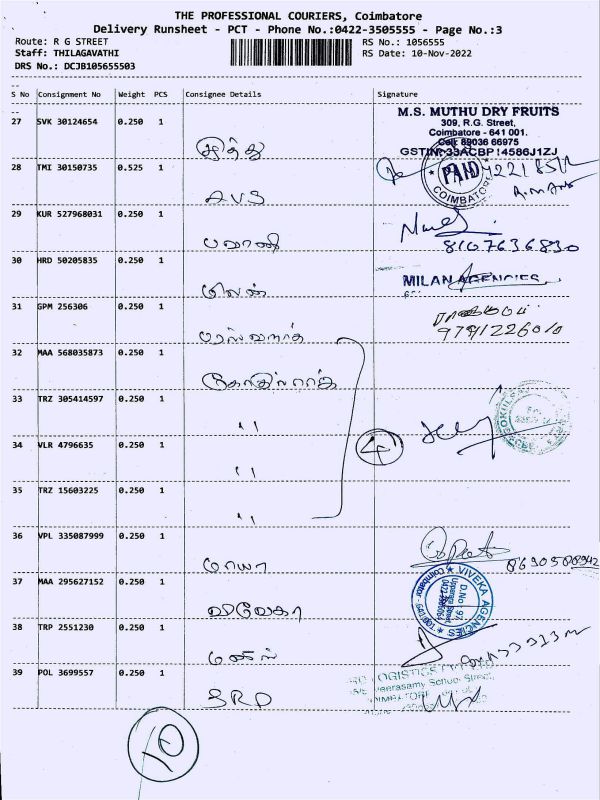 THE PROFESSIONAL COURIERS, Coimbatore
Delivery Runsheet - PCT - Phone No.:0422-3505555 - Page No.:3
Route: R G STREET
RS No.: 1056555
Staff: THILAGAVATHI
RS Date: 10-Nov-2022
DRS No.: DCJB105655503
S No Consignment No Weight PCS Consignee Details Signature
27 SVK 30124654 0.250 1
M.S. MUTHU DRY FRUITS
309, R.G. Street,
Coimbatore - 641 001.
Cell: 89036 66975
GSTIN:33ACBP14586J1ZJ
முத்து
28 TMI 30150735 0.525 1
PAID
COIMBATORE
AVS
29 KUR 527968031 0.250 1
பழனி
8107636830
30 HRD 50205835 0.250 1
MILAN AGENCIES
மிலன்
31 GPM 256306 0.250 1
9791226010
32 MAA 568035873 0.250 1
கோகுல்ராஜ்
33 TRZ 305414597 0.250 1
"
34 VLR 4796635 0.250 1
4
"
35 TRZ 15603225 0.250 1
"
36 VPL 335087999 0.250 1
மாயா
37 MAA 295627152 0.250 1
VIVEKA AGENCIES
D.No. 97,
விவேகா
38 TRP 2551230 0.250 1
39 POL 3699557 0.250 1
LOGISTICS
Veerasamy School Street,
SRD
10